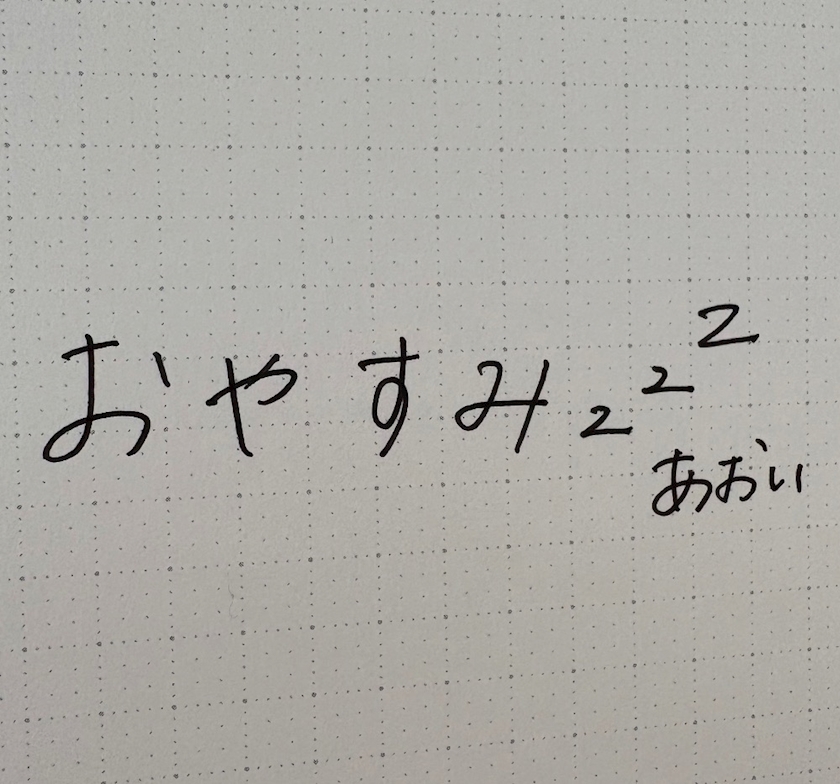 おやすみzzz
あおい